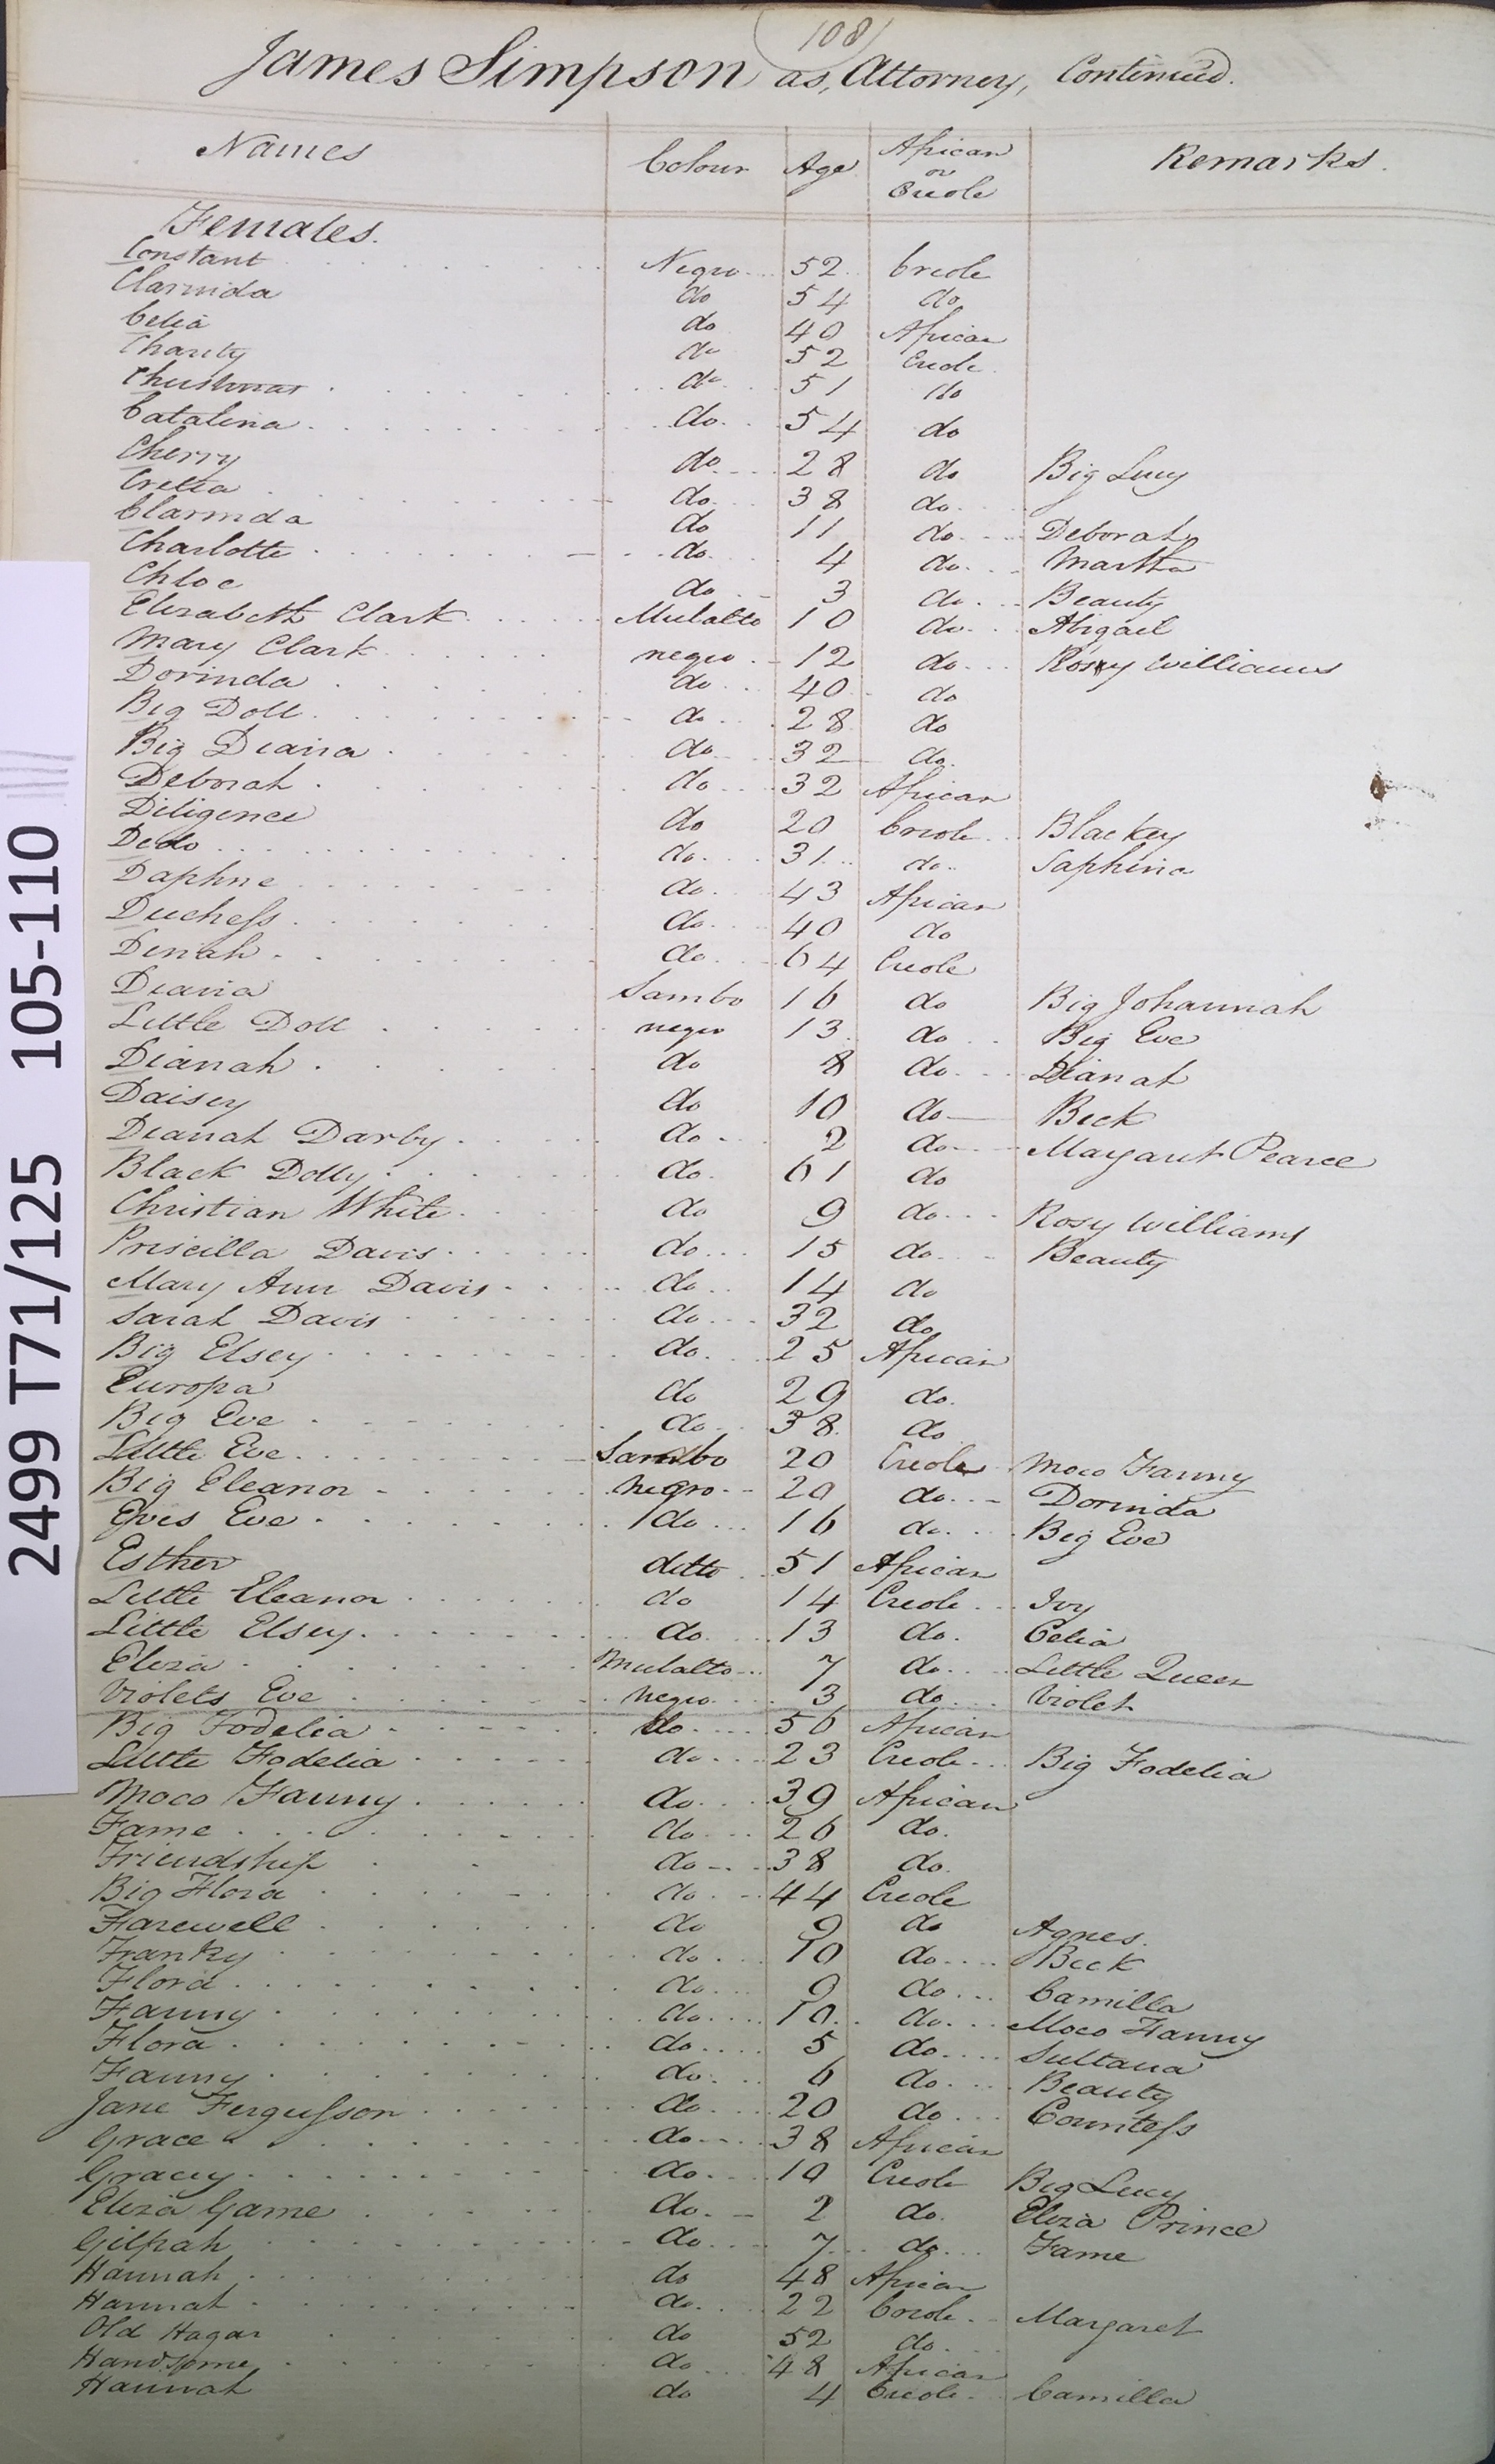 108
James Simpson as, Attorney, Continued.
Names Colour Age African or Creole Remarks.
Females.
Constant Negro 52 Creole
Clarinda do 54 do
Celia do 40 African
Charity do 52 Creole
do 51 do
Catalina do 54 do
Cherry do 28 do Big Lucy
Cretia do 38 do
Clarinda do 11 do Deborah
Charlotte do 4 do Martha
Chloe do 3 do Beauty
Elizabeth Clark Mulatto 10 do Abigail
Mary Clark negro 12 do Rosey Williams
Dorinda do 40 do
Big Doll do 28 do
Big Diana do 32 do
Deborah do 32 African
Diligence do 20 Creole Blackey
Dedo do 31 do Saphina
Daphne do 43 African
Duchess do 40 do
Dinah do 64 Creole
Diana Sambo 16 do Big Johannah
Little Doll negro 13 do Big Eve
Dianah do 8 do Dianah
Daisey do 10 do Beck
Dianah Darby do 2 do Margaret Pearce
Black Dolly do 61 do
Christian White do 9 do Rosy Williams
Priscilla Davis do 15 do Beauty
Mary Ann Davis do 14 do
Sarah Davis do 32 do
Big Elsey do 25 African
Europa do 29 do
Big Eve do 38 do
Little Eve Sambo 20 Creole Moco Fanny
Big Eleanor negro 20 do Dorinda
Eves Eve do 16 do Big Eve
Esther ditto 51 African
Little Eleanor do 14 Creole Ivy
Little Elsey do 13 do Celia
Eliza Mulatto 7 do Little Queen
Violets Eve negro 3 do Violet
Big Fodelia do 56 African
Little Fodelia do 23 Creole Big Fodelia
Moco Fanny do 39 African
Fame do 26 do
Friendship do 38 do
Big Flora do 44 Creole
Farewell do 9 do Agnes.
Franky do 10 do Beck
Flora do 9 do Camilla
Fanny do 10 do Moco Fanny
Flora do 5 do Sultana
Fanny do 6 do Beauty
Jane Fergusson do 20 do Countess
Grace do 38 African
Gracey do 10 Creole Big Lucy
Eliza Game do 2 do Eliza Prince
Gilpah do 7 do Fame
Hannah do 48 African
Hannah do 22 Creole Margaret
Old Hagar do 52 do
Handsome do 48 African
Hannah do 4 Creole Camilla
2499 T71/125 105-110